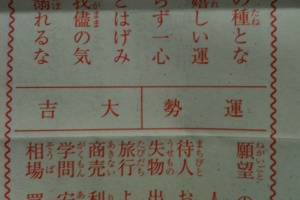 の種とな
嬉しい運
らず一心
とはげみ
我儘の気
溺れるな
運勢
大吉
願望
人
待人 お
失物 出
旅行 よ
商売 利
学問 安
相場